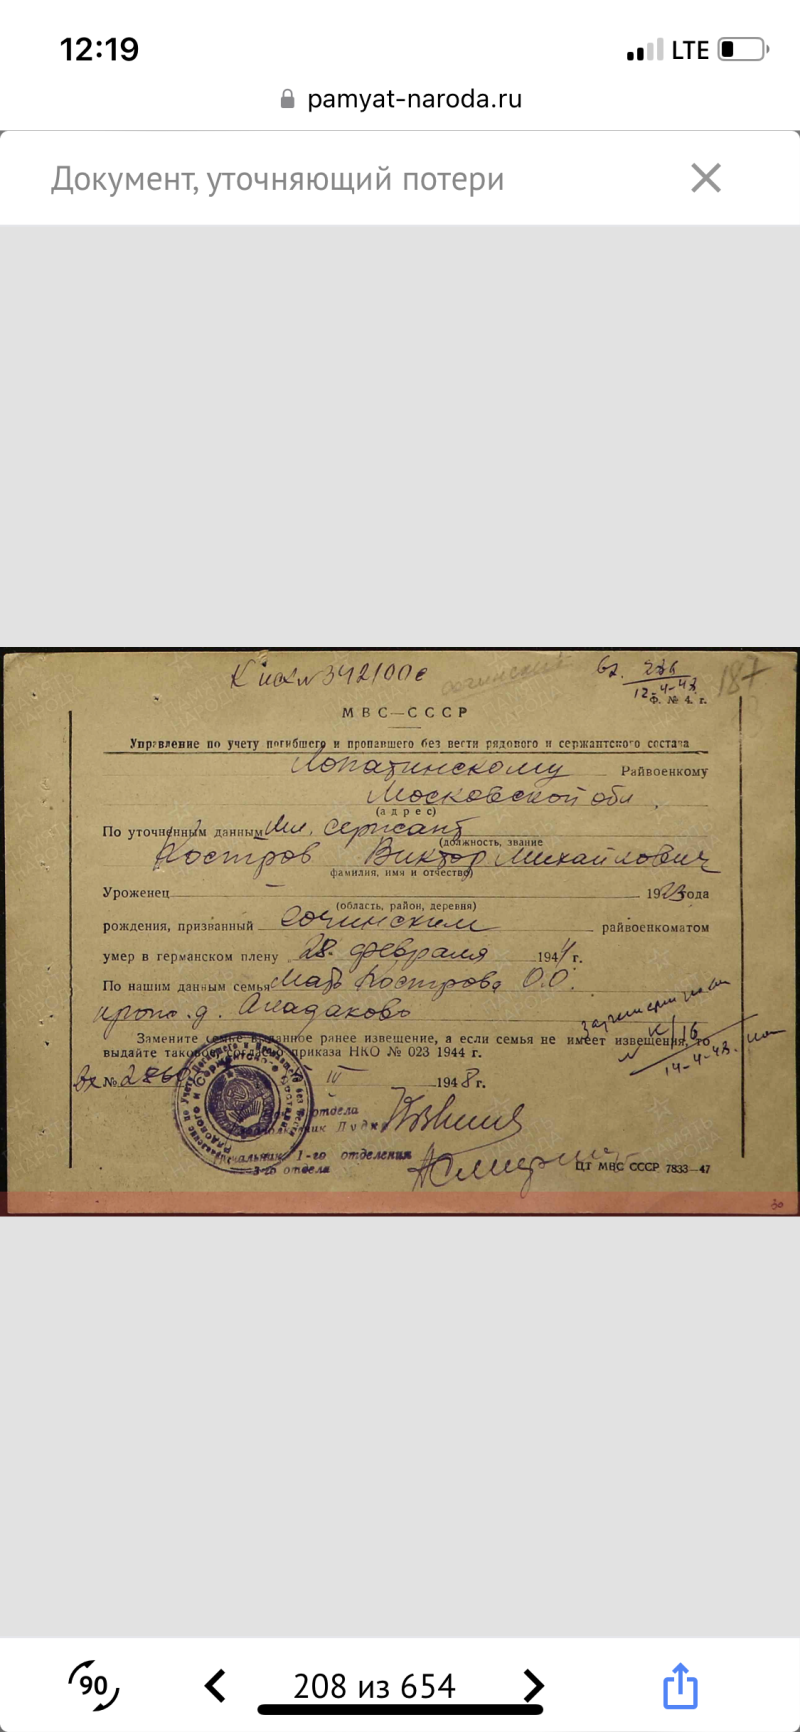 12:19
LTE
pamyat-naroda.ru
Документ, уточняющий потери
К исх № 342100с
сочинский
Вх. 187
12-4-48
Ф. № 4. г.
МВС—СССР
Управление по учету погибшего и пропавшего без вести рядового и сержантского состава
Лопатинскому Райвоенкому
Московской обл.
(адрес)
По уточненным данным Мл. сержант
(должность, звание
Костров Виктор Михайлович
фамилия, имя и отчество)
Уроженец — 1923 года
(область, район, деревня)
рождения, призванный Сочинским райвоенкоматом
умер в германском плену 28. февраля 1944 г.
По нашим данным семья Мать Кострова О.О.
прож. д.
Замените семье выданное ранее извещение, а если семья не имеет извещения, то
выдайте таковое согласно приказа НКО № 023 1944 г.
№ IV 1948 г.
14-4-48.
отдела
Начальник 1-го отделения
3-го отдела
ЦТ МВС СССР 7833—47
30
90
208 из 654